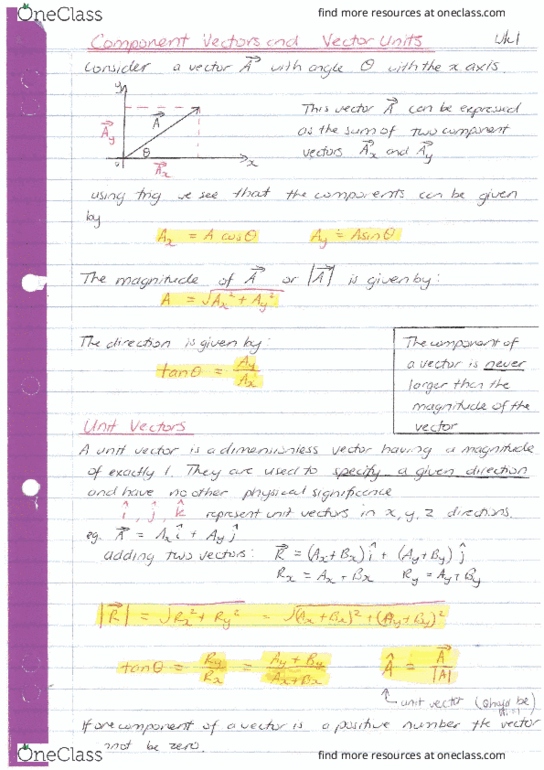 OneClass
find more resources at oneclass.com
Component Vectors and Vector Units
Wk1
Consider a vector A⃗ with angle θ with the x axis.
y
A⃗
A⃗y
θ
0
x
A⃗x
This vector A⃗ can be expressed
as the sum of two component
vectors A⃗x and A⃗y
using trig we see that the components can be given
by
Ax = A cosθ Ay = Asinθ
The magnitude of A⃗ or |A⃗| is given by:
A = √(Ax² + Ay²)
The direction is given by:
tanθ = Ay/Ax
The component of
a vector is never
larger than the
magnitude of the
vector
Unit Vectors
A unit vector is a dimensionless vector having a magnitude
of exactly 1. They are used to specify a given direction
and have no other physical significance
î, ĵ, k̂ represent unit vectors in x, y, z directions.
eg. A⃗ = Axî + Ayĵ
adding two vectors: R⃗ = (Ax+Bx)î + (Ay+By)ĵ
Rx = Ax + Bx Ry = Ay + By
|R⃗| = √(Rx² + Ry²) = √((Ax+Bx)² + (Ay+By)²)
tanθ = Ry/Rx = (Ay + By)/(Ax + Bx) Â = A⃗/|A|
unit vector (should be)
If one component of a vector is a positive number the vector
not be zero.
OneClass
find more resources at oneclass.com